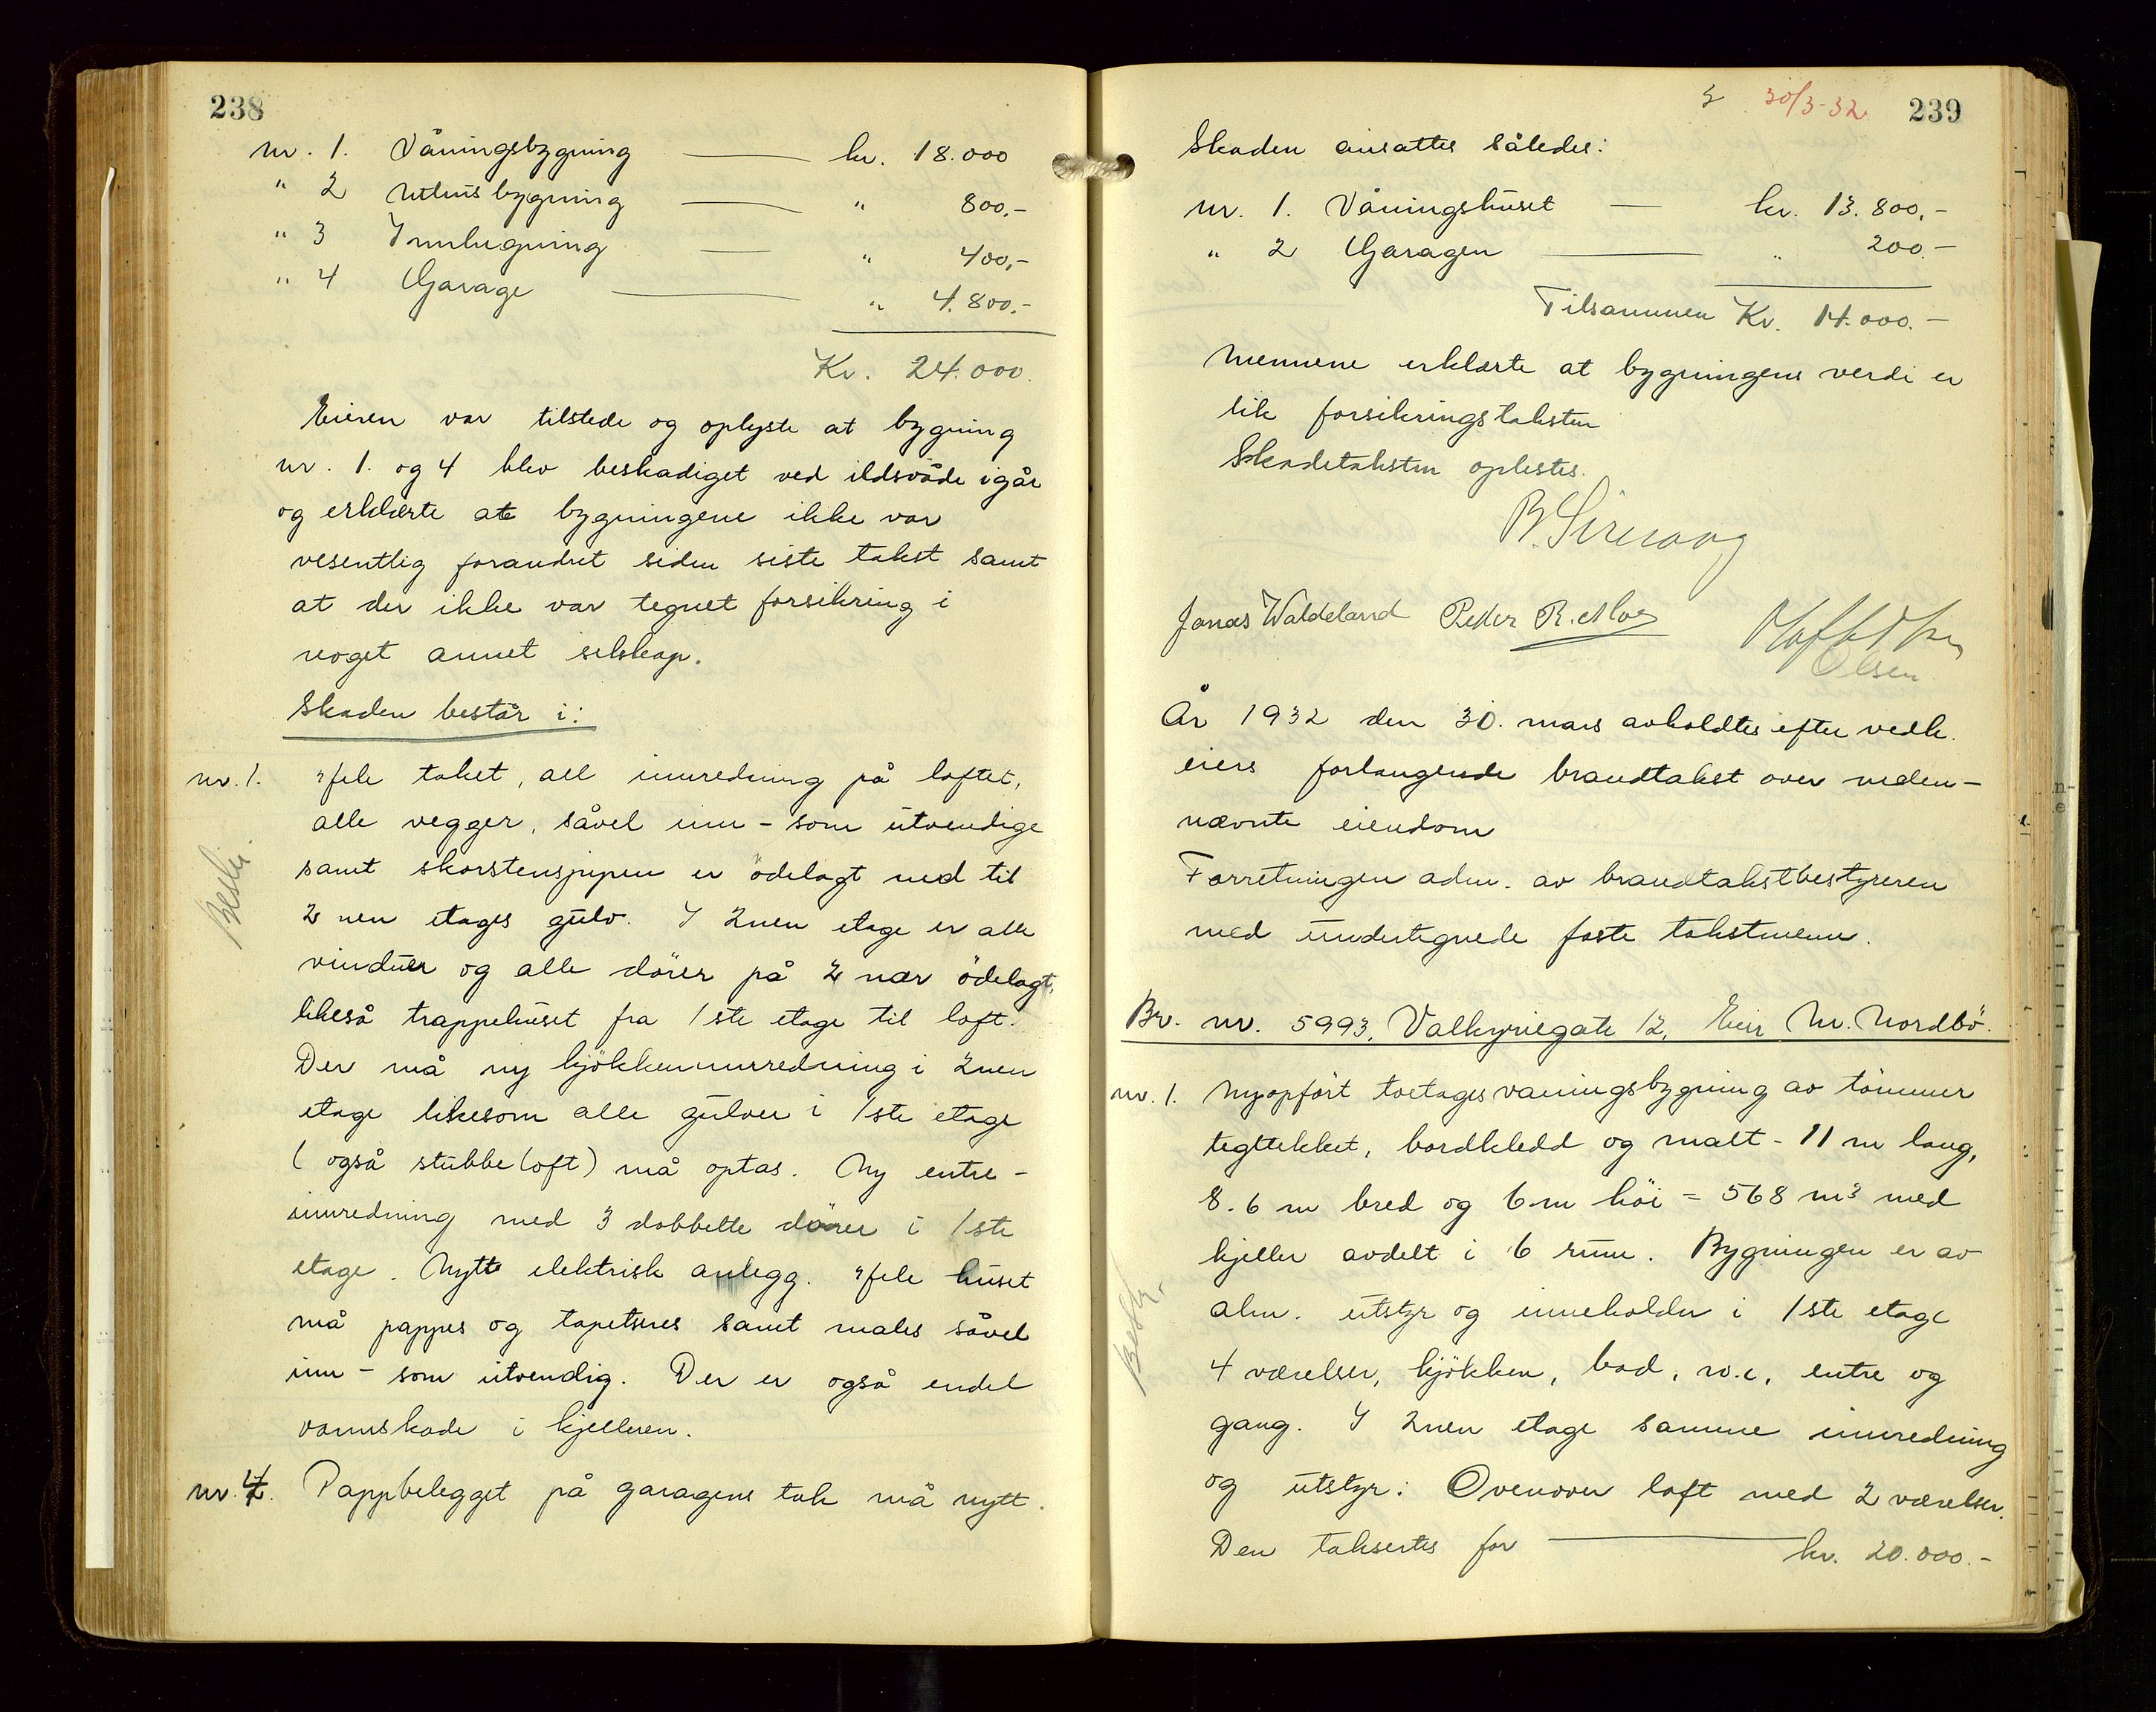 238
nr. 1. Våningsbygning kr. 18.000
" 2 Uthusbygning " 800,-
" 3 Innhegning " 400,-
" 4 Garage " 4.800,-
Kr. 24.000.
Eieren var tilstede og oplyste at bygning
nr. 1. og 4 blev beskadiget ved ildsvåde igår
og erklærte at bygningene ikke var
vesentlig forandret siden siste takst samt
at der ikke var tegnet forsikring i
noget annet selskap.
Skaden består i:
nr. 1. Hele taket, all innredning på loftet,
alle vegger, såvel inn- som utvendige
samt skorstenspipen er ödelagt ned til
2nen etages gulv. I 2nen etage er alle
vinduer og alle dörer på 2 nær ödelagt,
likeså trappehuset fra 1ste etage til loft.
Der må ny kjökkeninnredning i 2nen
etage likesom alle gulver i 1ste etage
(også stubbeloft) må optas. Ny entre-
innredning med 3 dobbelte dörer i 1ste
etage. Nytt elektrisk anlegg. Hele huset
må pappes og tapetseres samt males såvel
inn- som utvendig. Der er også endel
vannskade i kjelleren.
nr. 4. Pappbelegget på garagens tak må nytt.
Besk.
30/3-32. 239
Skaden ansattes således:
nr. 1. Våningshuset kr. 13.800,-
" 2 Garagen " 200.-
Tilsammen Kr. 14.000.-
Mennene erklærte at bygningens verdi er
lik forsikringstaksten
Skadetaksten oplestes.
Jonas Waldeland Peder R.
Olsen
År 1932 den 30. mars avholdtes efter vedk.
eiers forlangende brandtakst over neden-
nævnte eiendom
Forretningen adm. av brandtakstbestyreren
med undertegnede faste takstmenn.
Br. nr. 5993, Valkyriegate 12, Eier M. Nordbö.
nr. 1. Nyopfört toetages våningsbygning av tömmer
teglttekket, bordkledd og malt - 11 m lang,
8.6 m bred og 6 m höi = 568 m³ med
kjeller avdelt i 6 rum. Bygningen er av
alm. utstyr og inneholder i 1ste etage
4 værelser, kjökken, bad, w.c, entre og
gang. I 2nen etage samme innredning
og utstyr. Ovenover loft med 2 værelser.
Den takseres for kr. 20.000.-
Besk.